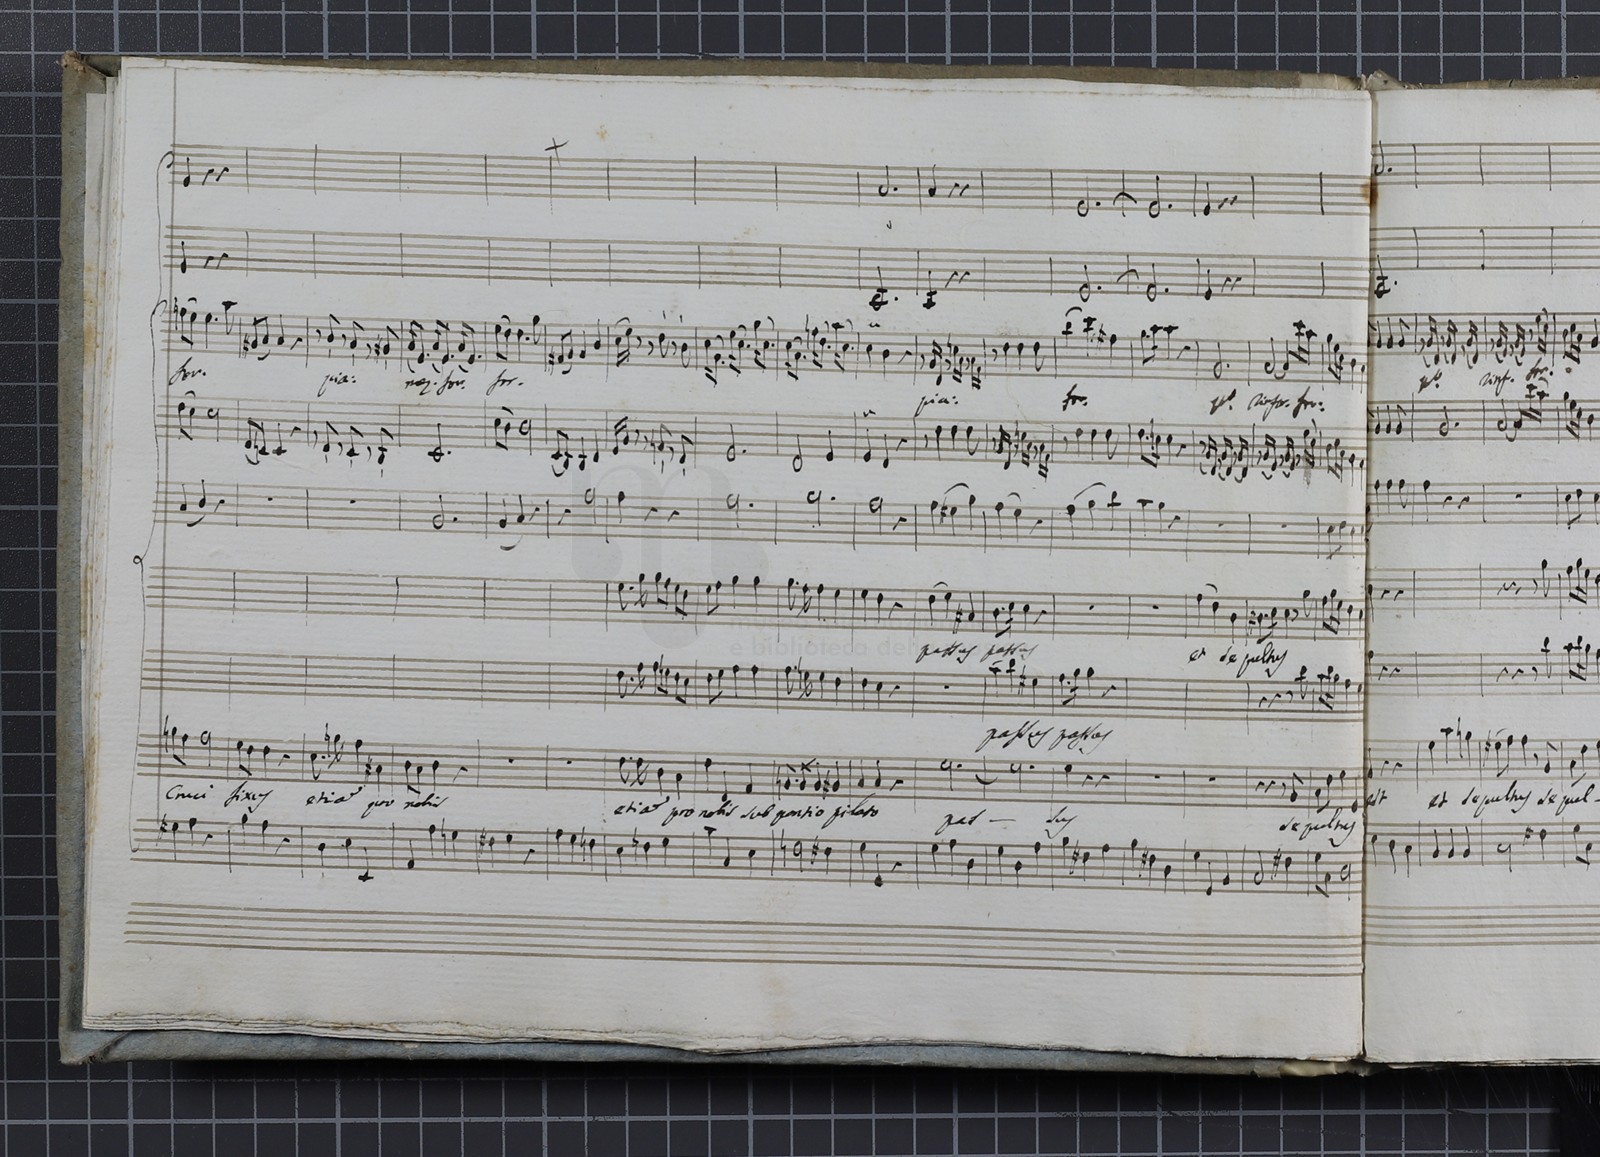 for. pia: rinf. for. for.
pia: for. pº rinfor. for:
pº rinf. for.
passus passus et sepultus
passus passus
Cruci fixus etia pro nobis etia pro nobis sub pontio pilato pas — sus sepultus
est et sepultus sepul-
museo
e biblioteca della